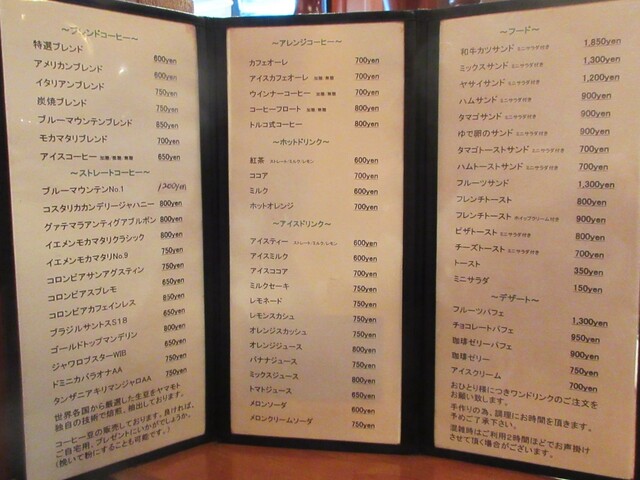 ～ブレンドコーヒー～
特選ブレンド 600yen
アメリカンブレンド 600yen
イタリアンブレンド 750yen
炭焼ブレンド 750yen
ブルーマウンテンブレンド 850yen
モカマタリブレンド 700yen
アイスコーヒー 加糖/微糖/無糖 650yen
～ストレートコーヒー～
ブルーマウンテンNo.1
コスタリカカンデリージャハニー 800yen
グァテマラアンティグアブルボン 800yen
イエメンモカマタリクラシック 800yen
イエメンモカマタリNo.9 750yen
コロンビアサンアグスティン 650yen
コロンビアスプレモ 650yen
コロンビアカフェインレス 650yen
ブラジルサントスS18 650yen
ゴールドトップマンデリン 800yen
ジャワロブスターWIB 750yen
ドミニカバラオナAA 750yen
タンザニアキリマンジャロAA 750yen
世界各国から厳選した生豆をヤマモト
独自の技術で焙煎、抽出しております。
コーヒー豆の販売しております。良ければ、
ご自宅用、プレゼントにいかがでしょうか。
(挽いて粉にすることも可能です。)
～アレンジコーヒー～
カフェオーレ 700yen
アイスカフェオーレ 加糖/無糖 700yen
ウインナーコーヒー 加糖/無糖 700yen
コーヒーフロート 加糖/無糖 800yen
トルコ式コーヒー 800yen
～ホットドリンク～
紅茶 ストレート・ミルク・レモン 600yen
ココア 700yen
ミルク 600yen
ホットオレンジ 700yen
～アイスドリンク～
アイスティー ストレート・ミルク・レモン 600yen
アイスミルク 600yen
アイスココア 700yen
ミルクセーキ 750yen
レモネード 750yen
レモンスカシュ 750yen
オレンジスカッシュ 750yen
オレンジジュース 800yen
バナナジュース 750yen
ミックスジュース 800yen
トマトジュース 650yen
メロンソーダ 600yen
メロンクリームソーダ 750yen
～フード～
和牛カツサンド ミニサラダ付き 1,850yen
ミックスサンド ミニサラダ付き 1,300yen
ヤサイサンド ミニサラダ付き 1,200yen
ハムサンド ミニサラダ付き 900yen
タマゴサンド ミニサラダ付き 900yen
ゆで卵のサンド ミニサラダ付き 900yen
タマゴトーストサンド ミニサラダ付き 700yen
ハムトーストサンド ミニサラダ付き 700yen
フルーツサンド 1,300yen
フレンチトースト 800yen
フレンチトースト ホイップクリーム付き 900yen
ピザトースト ミニサラダ付き 800yen
チーズトースト ミニサラダ付き 700yen
トースト 350yen
ミニサラダ 150yen
～デザート～
フルーツパフェ 1,300yen
チョコレートパフェ 950yen
珈琲ゼリーパフェ 900yen
珈琲ゼリー 750yen
アイスクリーム 700yen
おひとり様につきワンドリンクのご注文を
お願い致します。
手作りの為、調理にお時間を頂きます。
予めご了承下さい。
混雑時はご利用2時間ほどでお声掛け
させて頂く場合がございます。